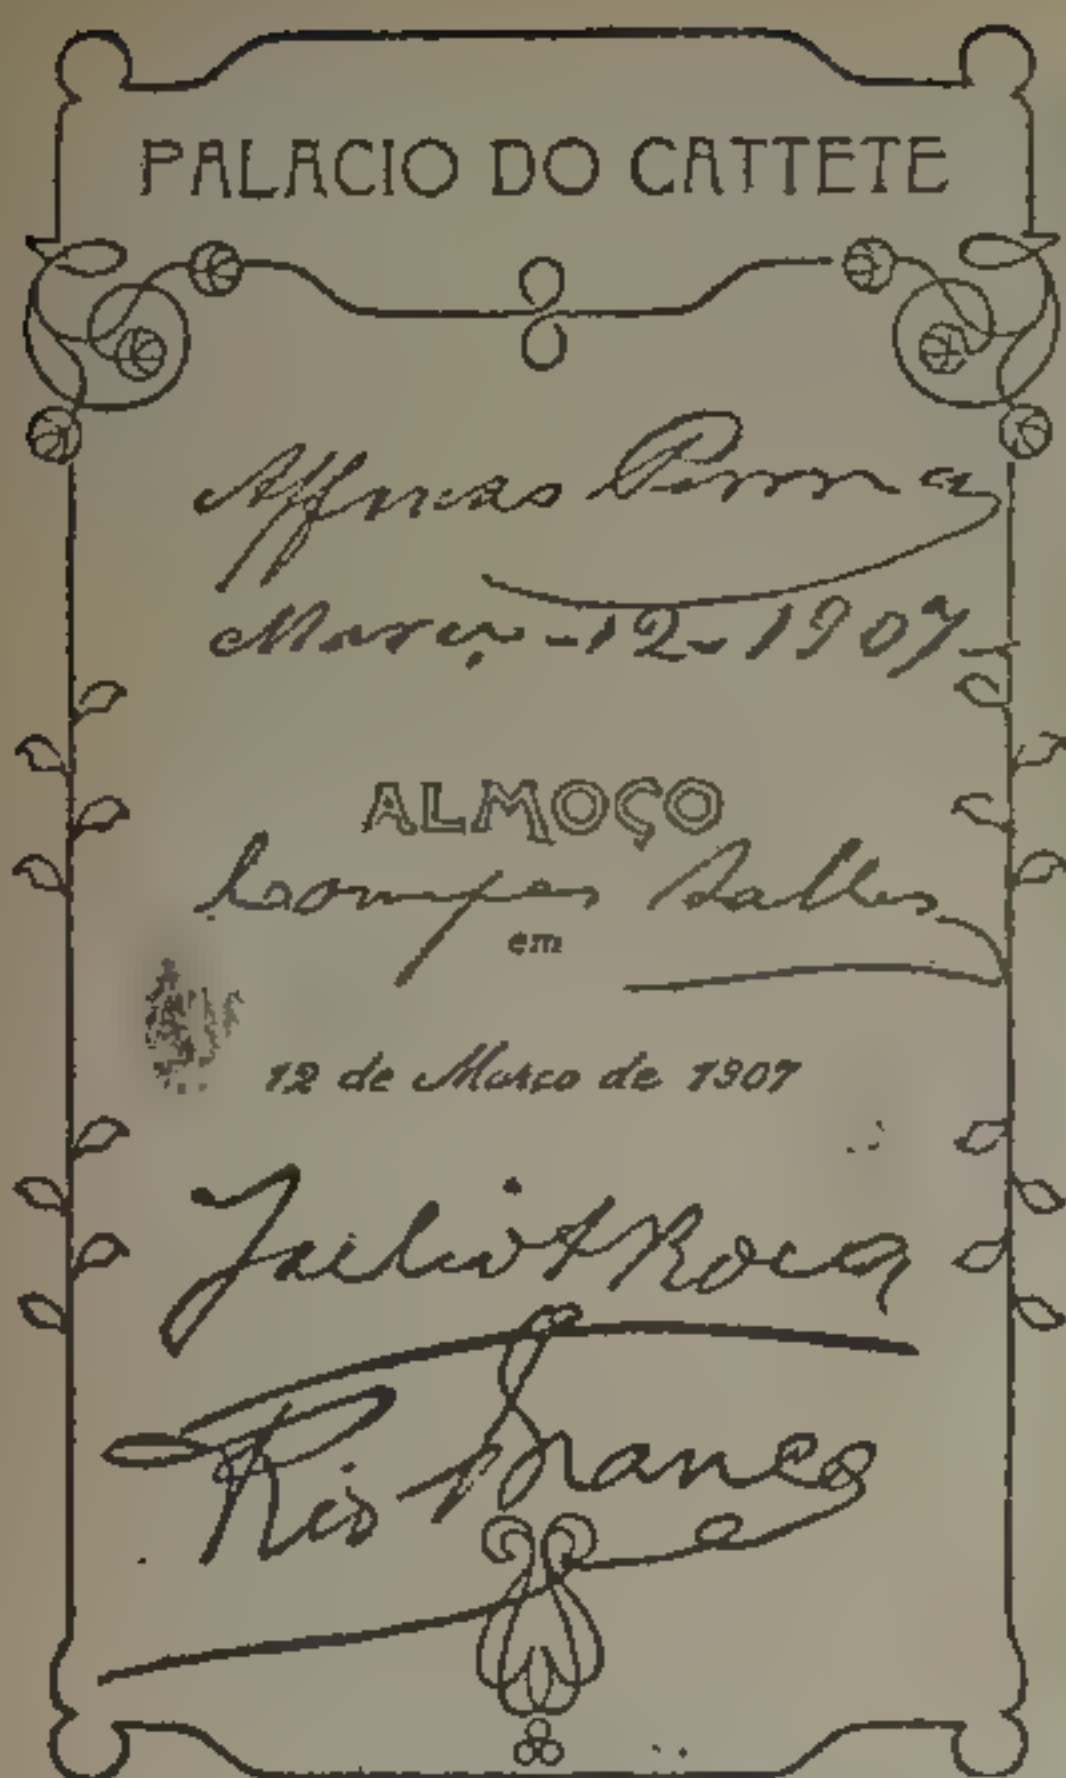 PALACIO DO CATTETE
Affonso Penna
Março - 12 - 1907
ALMOÇO
Campos Salles
em
12 de Março de 1907
Julio A Roca
Rio Branco